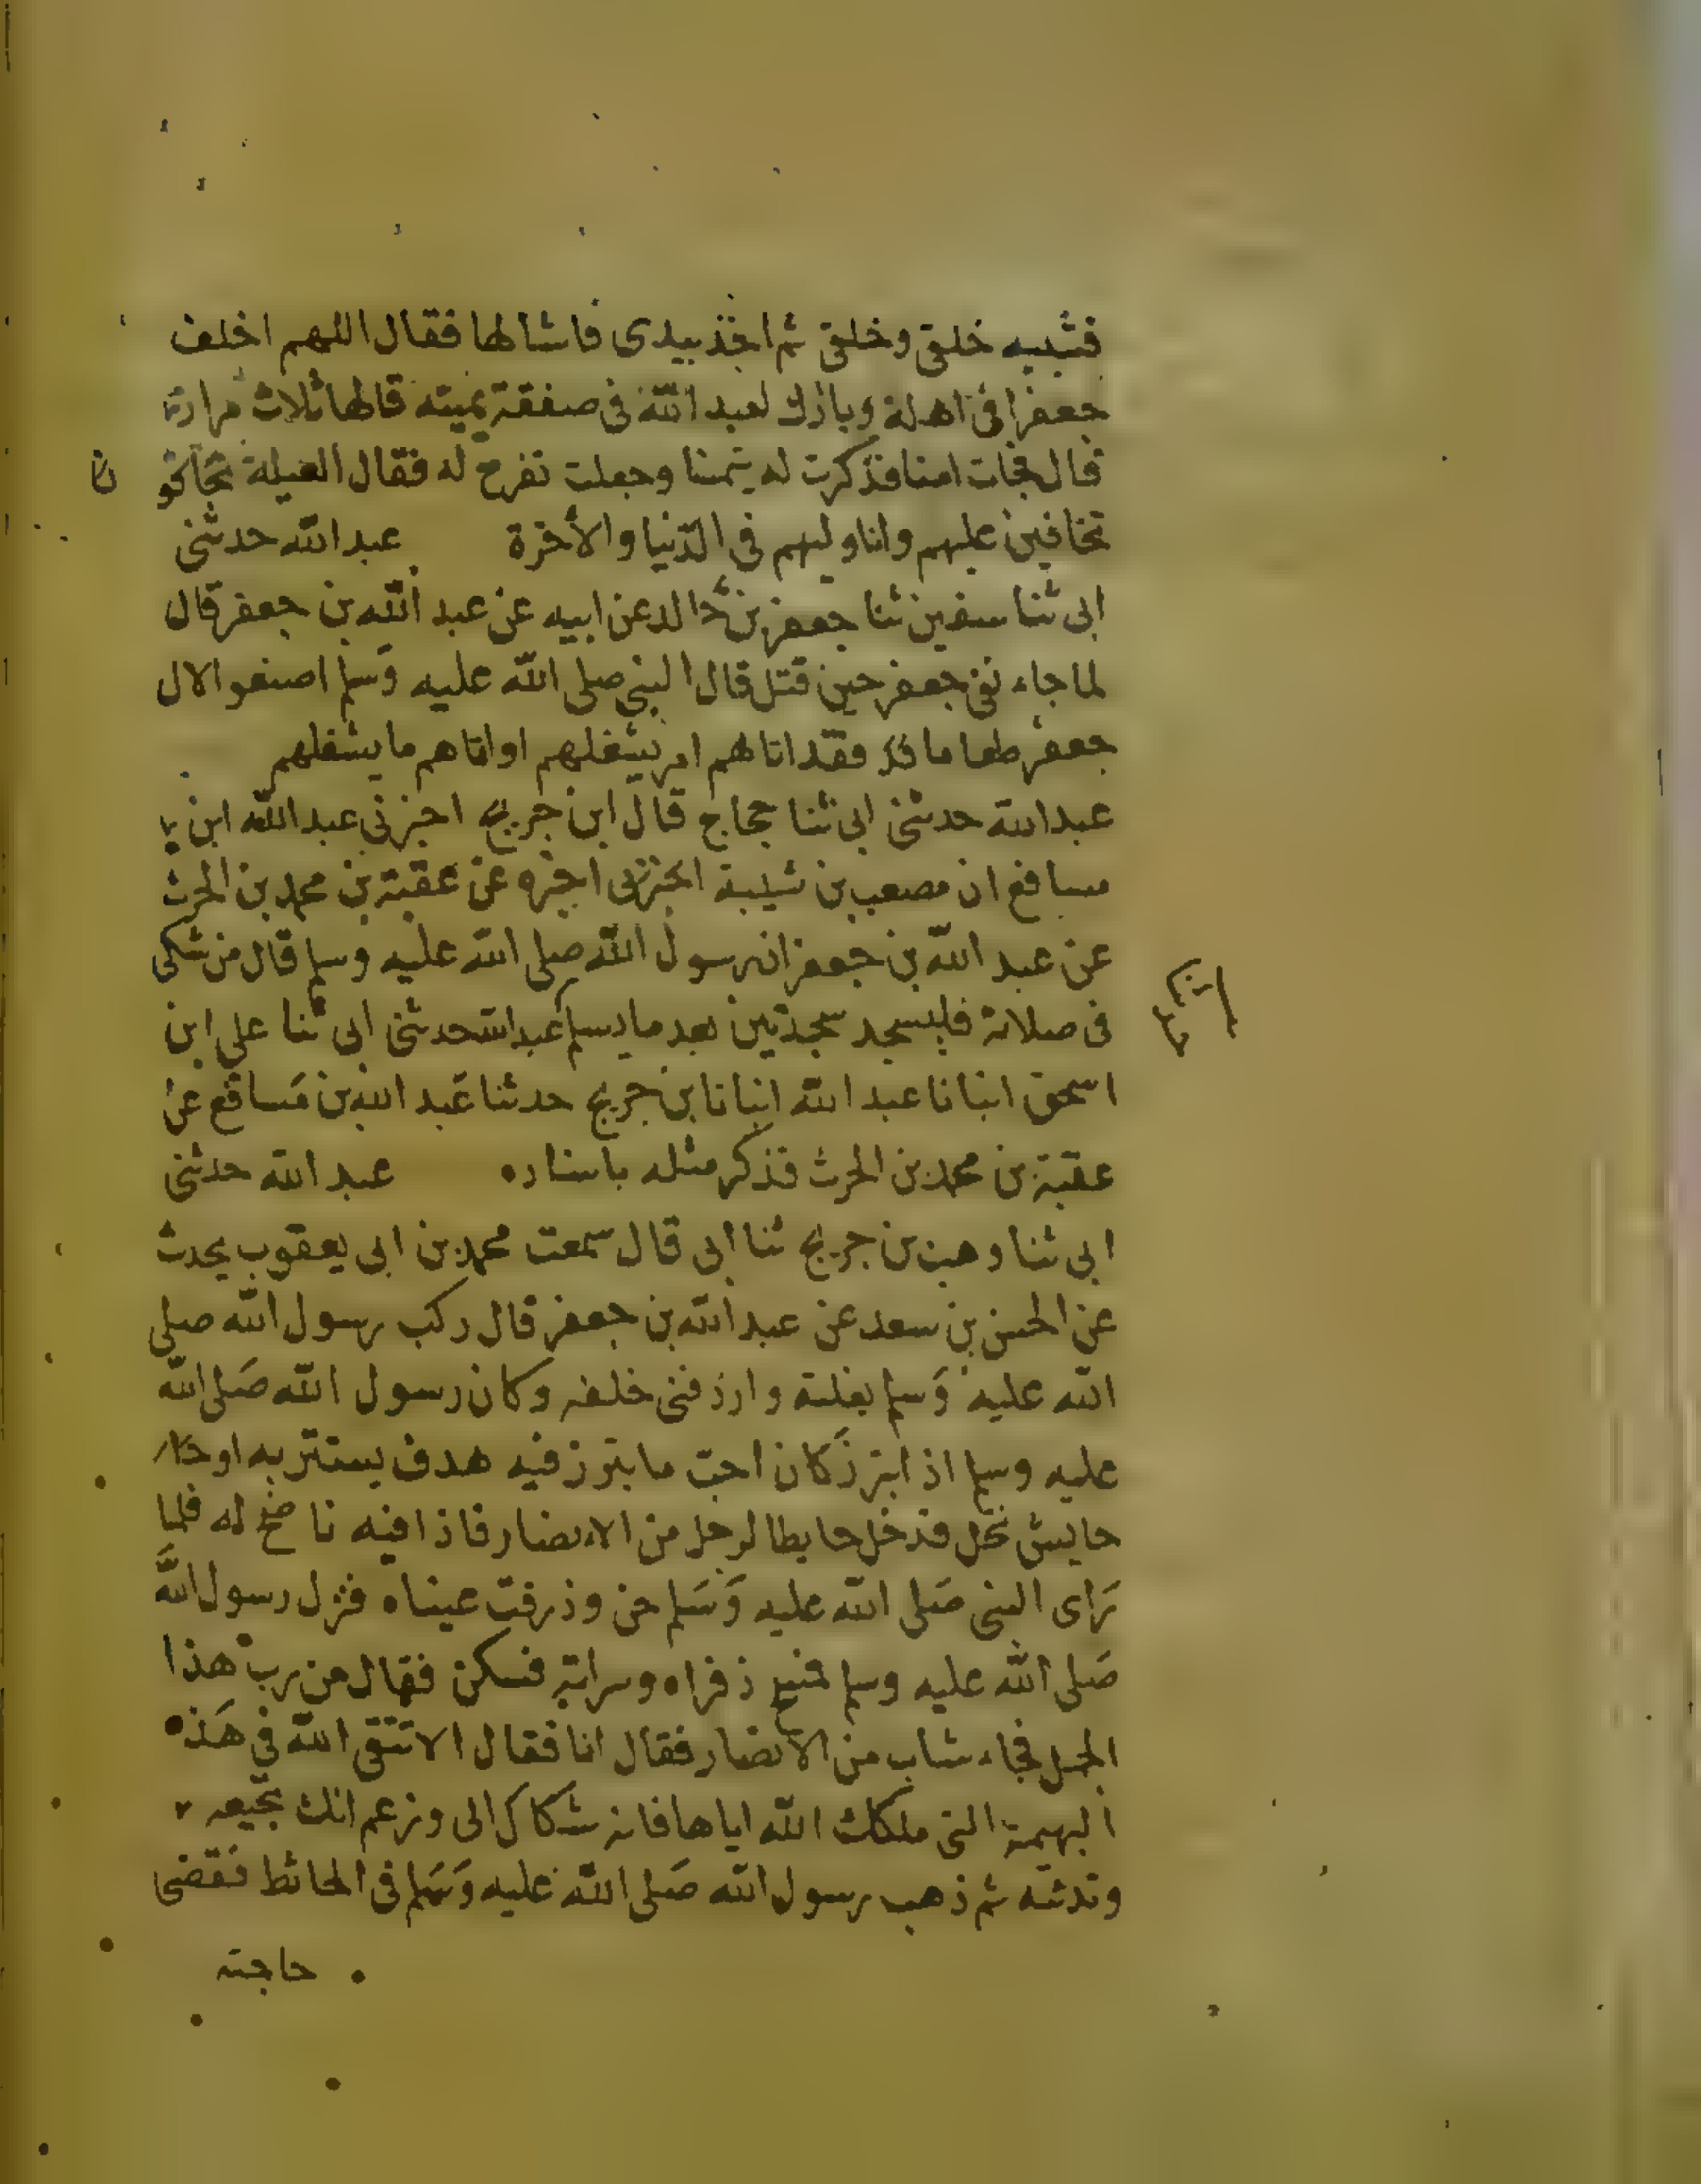 فشبيه خلقى وخلقى ثم اخذ بيدى فاشالها فقال اللهم اخلف
جعفرا فى اهله وبارك لعبد الله فى صفقة يمينه قالها ثلاث مرات
قال فجات امنا فذكرت له يتمنا وجعلت تفرح له فقال العيلة
تخافين عليهم وانا وليهم فى الدنيا والأخرة عبد الله حدثنى
ابى ثنا سفين ثنا جعفر بن خالد عن ابيه عن عبد الله بن جعفر قال
لما جاء نعى جعفر حين قتل قال النبى صلى الله عليه وسلم اصنعوا لال
جعفر طعاما فقد اتاهم امر يشغلهم او اتاهم ما يشغلهم
عبد الله حدثنى ابى ثنا حجاج قال ابن جريج اخبرنى عبد الله ابن
مسافع ان مصعب بن شيبة اخبره عن عقبة بن محمد بن الحرث
عن عبد الله بن جعفر ان رسول الله صلى الله عليه وسلم قال من شك
فى صلاته فليسجد سجدتين بعد ما يسلم عبد الله حدثنى ابى ثنا على ابن
اسحق انبانا عبد الله انبانا بن جريج حدثنا عبد الله بن مسافع عن
عقبة بن محمد بن الحرث فذكر مثله باسناده عبد الله حدثنى
ابى ثنا وهب بن جريج ثنا ابى قال سمعت محمد بن ابى يعقوب يحدث
عن الحسن بن سعد عن عبد الله بن جعفر قال ركب رسول الله صلى
الله عليه وسلم بغلته واردفنى خلفه وكان رسول الله صلى الله
عليه وسلم اذ ابترز كان احب ما يتبرز فيه هدف يستتر به او
حايش نخل فدخل حايطا لرجل من الانصار فاذا فيه ناضح له فلما
راى النبى صلى الله عليه وسلم حن وذرفت عيناه فنزل رسول الله
صلى الله عليه وسلم فمسح ذفراه وسراته فسكن فقال من رب هذا
الجمل فجاء شاب من الانصار فقال انا فقال الا تتقى الله فى هذه
البهيمة التى ملكك الله اياها فانه شكاك الى وزعم انك تجيعه
وتدئبه ثم ذهب رسول الله صلى الله عليه وسلم فى الحائط فقضى
حاجته